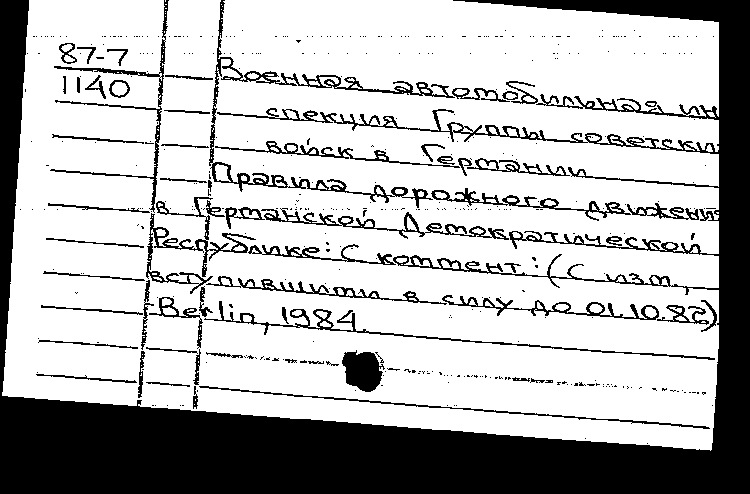 87-7
1140
Военная автомобильная ин
спекция Группы советски
войск в Германии
Правила дорожного движени
в Германской Демократической
Республике: С коммент.: (С изм.,
вступившими в силу до 01.10.82)
Berlin, 1984.